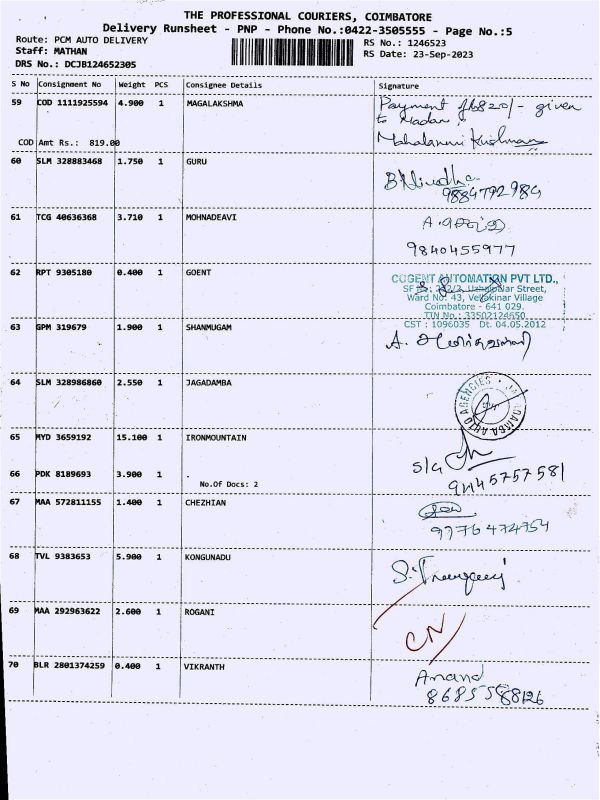 THE PROFESSIONAL COURIERS, COIMBATORE
Delivery Runsheet - PNP - Phone No.:0422-3505555 - Page No.:5
Route: PCM AUTO DELIVERY RS No.: 1246523
Staff: MATHAN RS Date: 23-Sep-2023
DRS No.: DCJB124652305
S No Consignment No Weight PCS Consignee Details Signature
59 COD 1111925594 4.900 1 MAGALAKSHMA Payment of 820/- given
to Madan
COD Amt Rs.: 819.00
60 SLM 328883468 1.750 1 GURU
9884792989
61 TCG 40636368 3.710 1 MOHNADEAVI
9840455977
62 RPT 9305180 0.400 1 GOENT COGENT AUTOMATION PVT LTD.,
Street,
Ward No: 43, Vellakinar Village
Coimbatore - 641 029.
TIN No.: 33502124650
CST : 1096035 Dt. 04.05.2012
63 GPM 319679 1.900 1 SHANMUGAM
64 SLM 328986860 2.550 1 JAGADAMBA
65 MYD 3659192 15.100 1 IRONMOUNTAIN
66 PDK 8189693 3.900 1 .
No.Of Docs: 2
67 MAA 572811155 1.400 1 CHEZHIAN
9776474754
68 TVL 9383653 5.900 1 KONGUNADU
69 MAA 292963622 2.600 1 ROGANI
CN
70 BLR 2801374259 0.400 1 VIKRANTH Anand